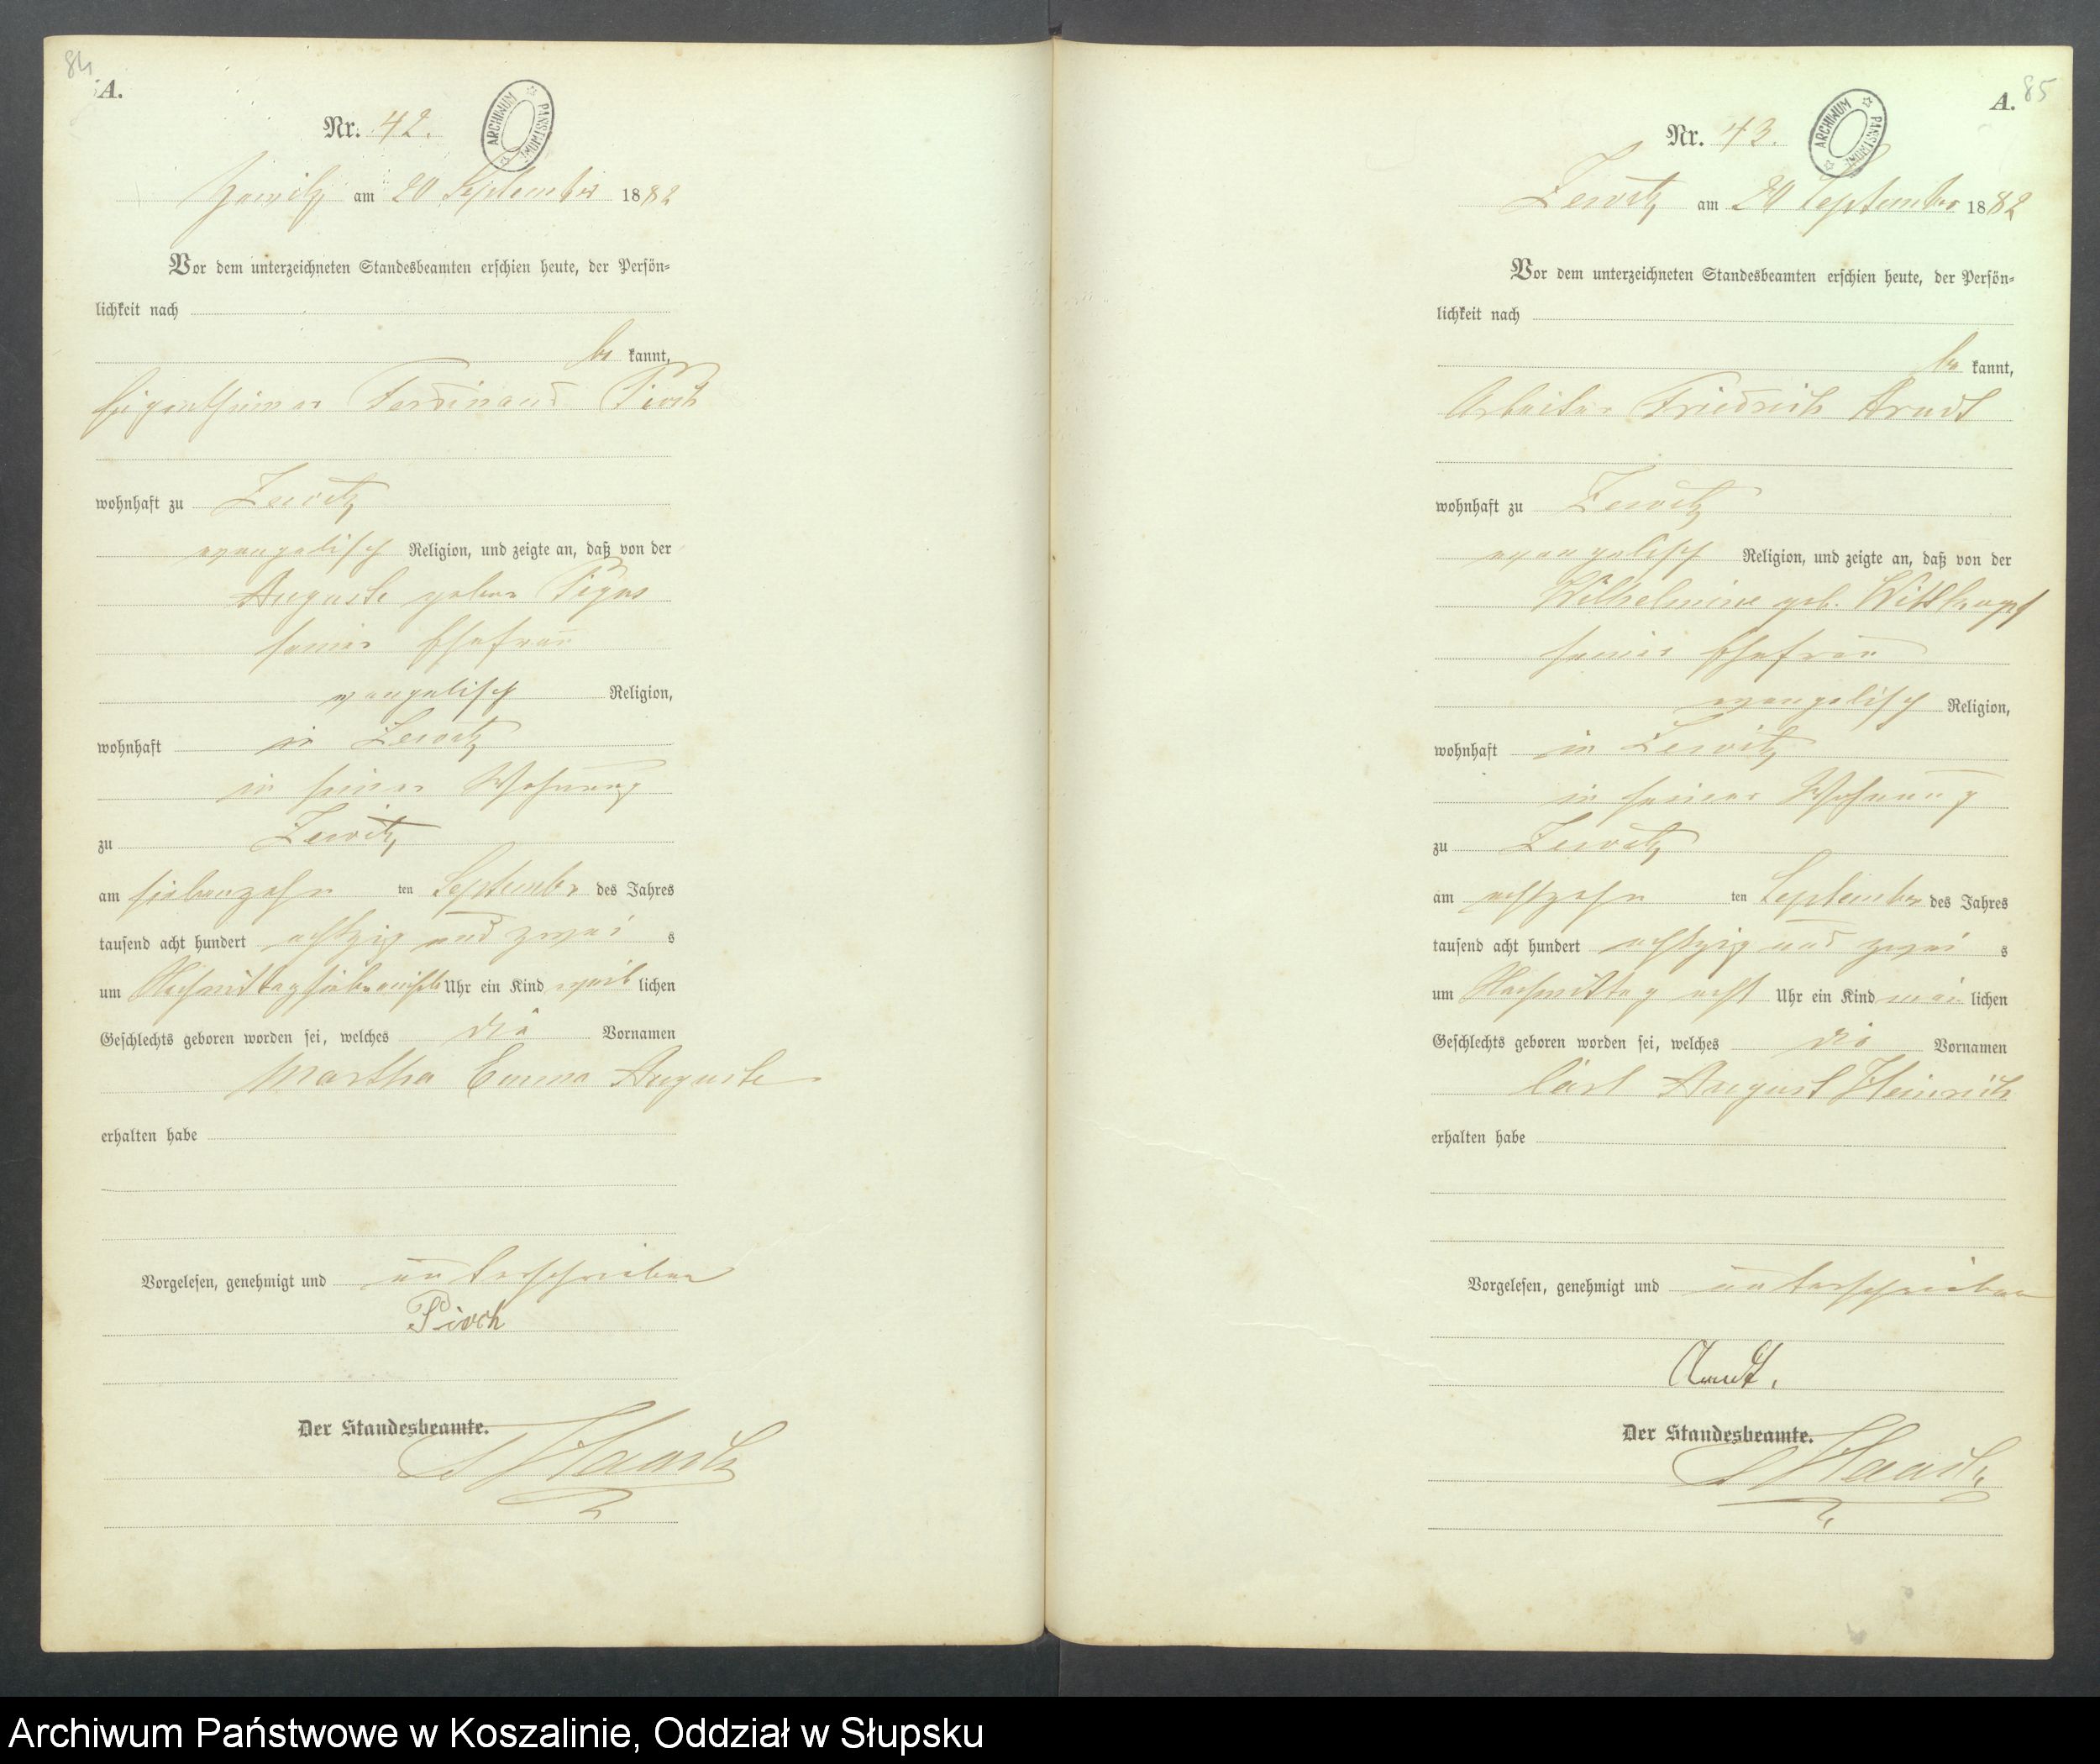 84
A.
Nr. 42.
ARCHIWUM PAŃSTWOWE
am 20 September 1882
Vor dem unterzeichneten Standesbeamten erschien heute, der Persön-
lichkeit nach
be kannt,
Eigenthümer Ferdinand Pioch
wohnhaft zu Zewitz
evangelisch Religion, und zeigte an, daß von der
Auguste geborn
seiner Ehefrau
evangelisch Religion,
wohnhaft in Zewitz
in seiner Wohnung
zu Zewitz
am siebenzehn ten September des Jahres
tausend acht hundert achtzig und zwei s
um Nachmittag Uhr ein Kind weib lichen
Geschlechts geboren worden sei, welches die Vornamen
Martha Emma Auguste
erhalten habe
Vorgelesen, genehmigt und unterschrieben
Pioch
Der Standesbeamte.
85
A.
Nr. 43.
ARCHIWUM PAŃSTWOWE
Zewitz am 20 September 1882
Vor dem unterzeichneten Standesbeamten erschien heute, der Persön-
lichkeit nach
be kannt,
Arbeiter Friedrich Arndt
wohnhaft zu Zewitz
evangelisch Religion, und zeigte an, daß von der
Wilhelmine geb.
seiner Ehefrau
evangelisch Religion,
wohnhaft in Zewitz
in seiner Wohnung
zu Zewitz
am achtzehn ten September des Jahres
tausend acht hundert achtzig und zwei s
um Nachmittag acht Uhr ein Kind män lichen
Geschlechts geboren worden sei, welches die Vornamen
Carl August Heinrich
erhalten habe
Vorgelesen, genehmigt und unterschrieben
Arndt.
Der Standesbeamte.
Archiwum Państwowe w Koszalinie, Oddział w Słupsku